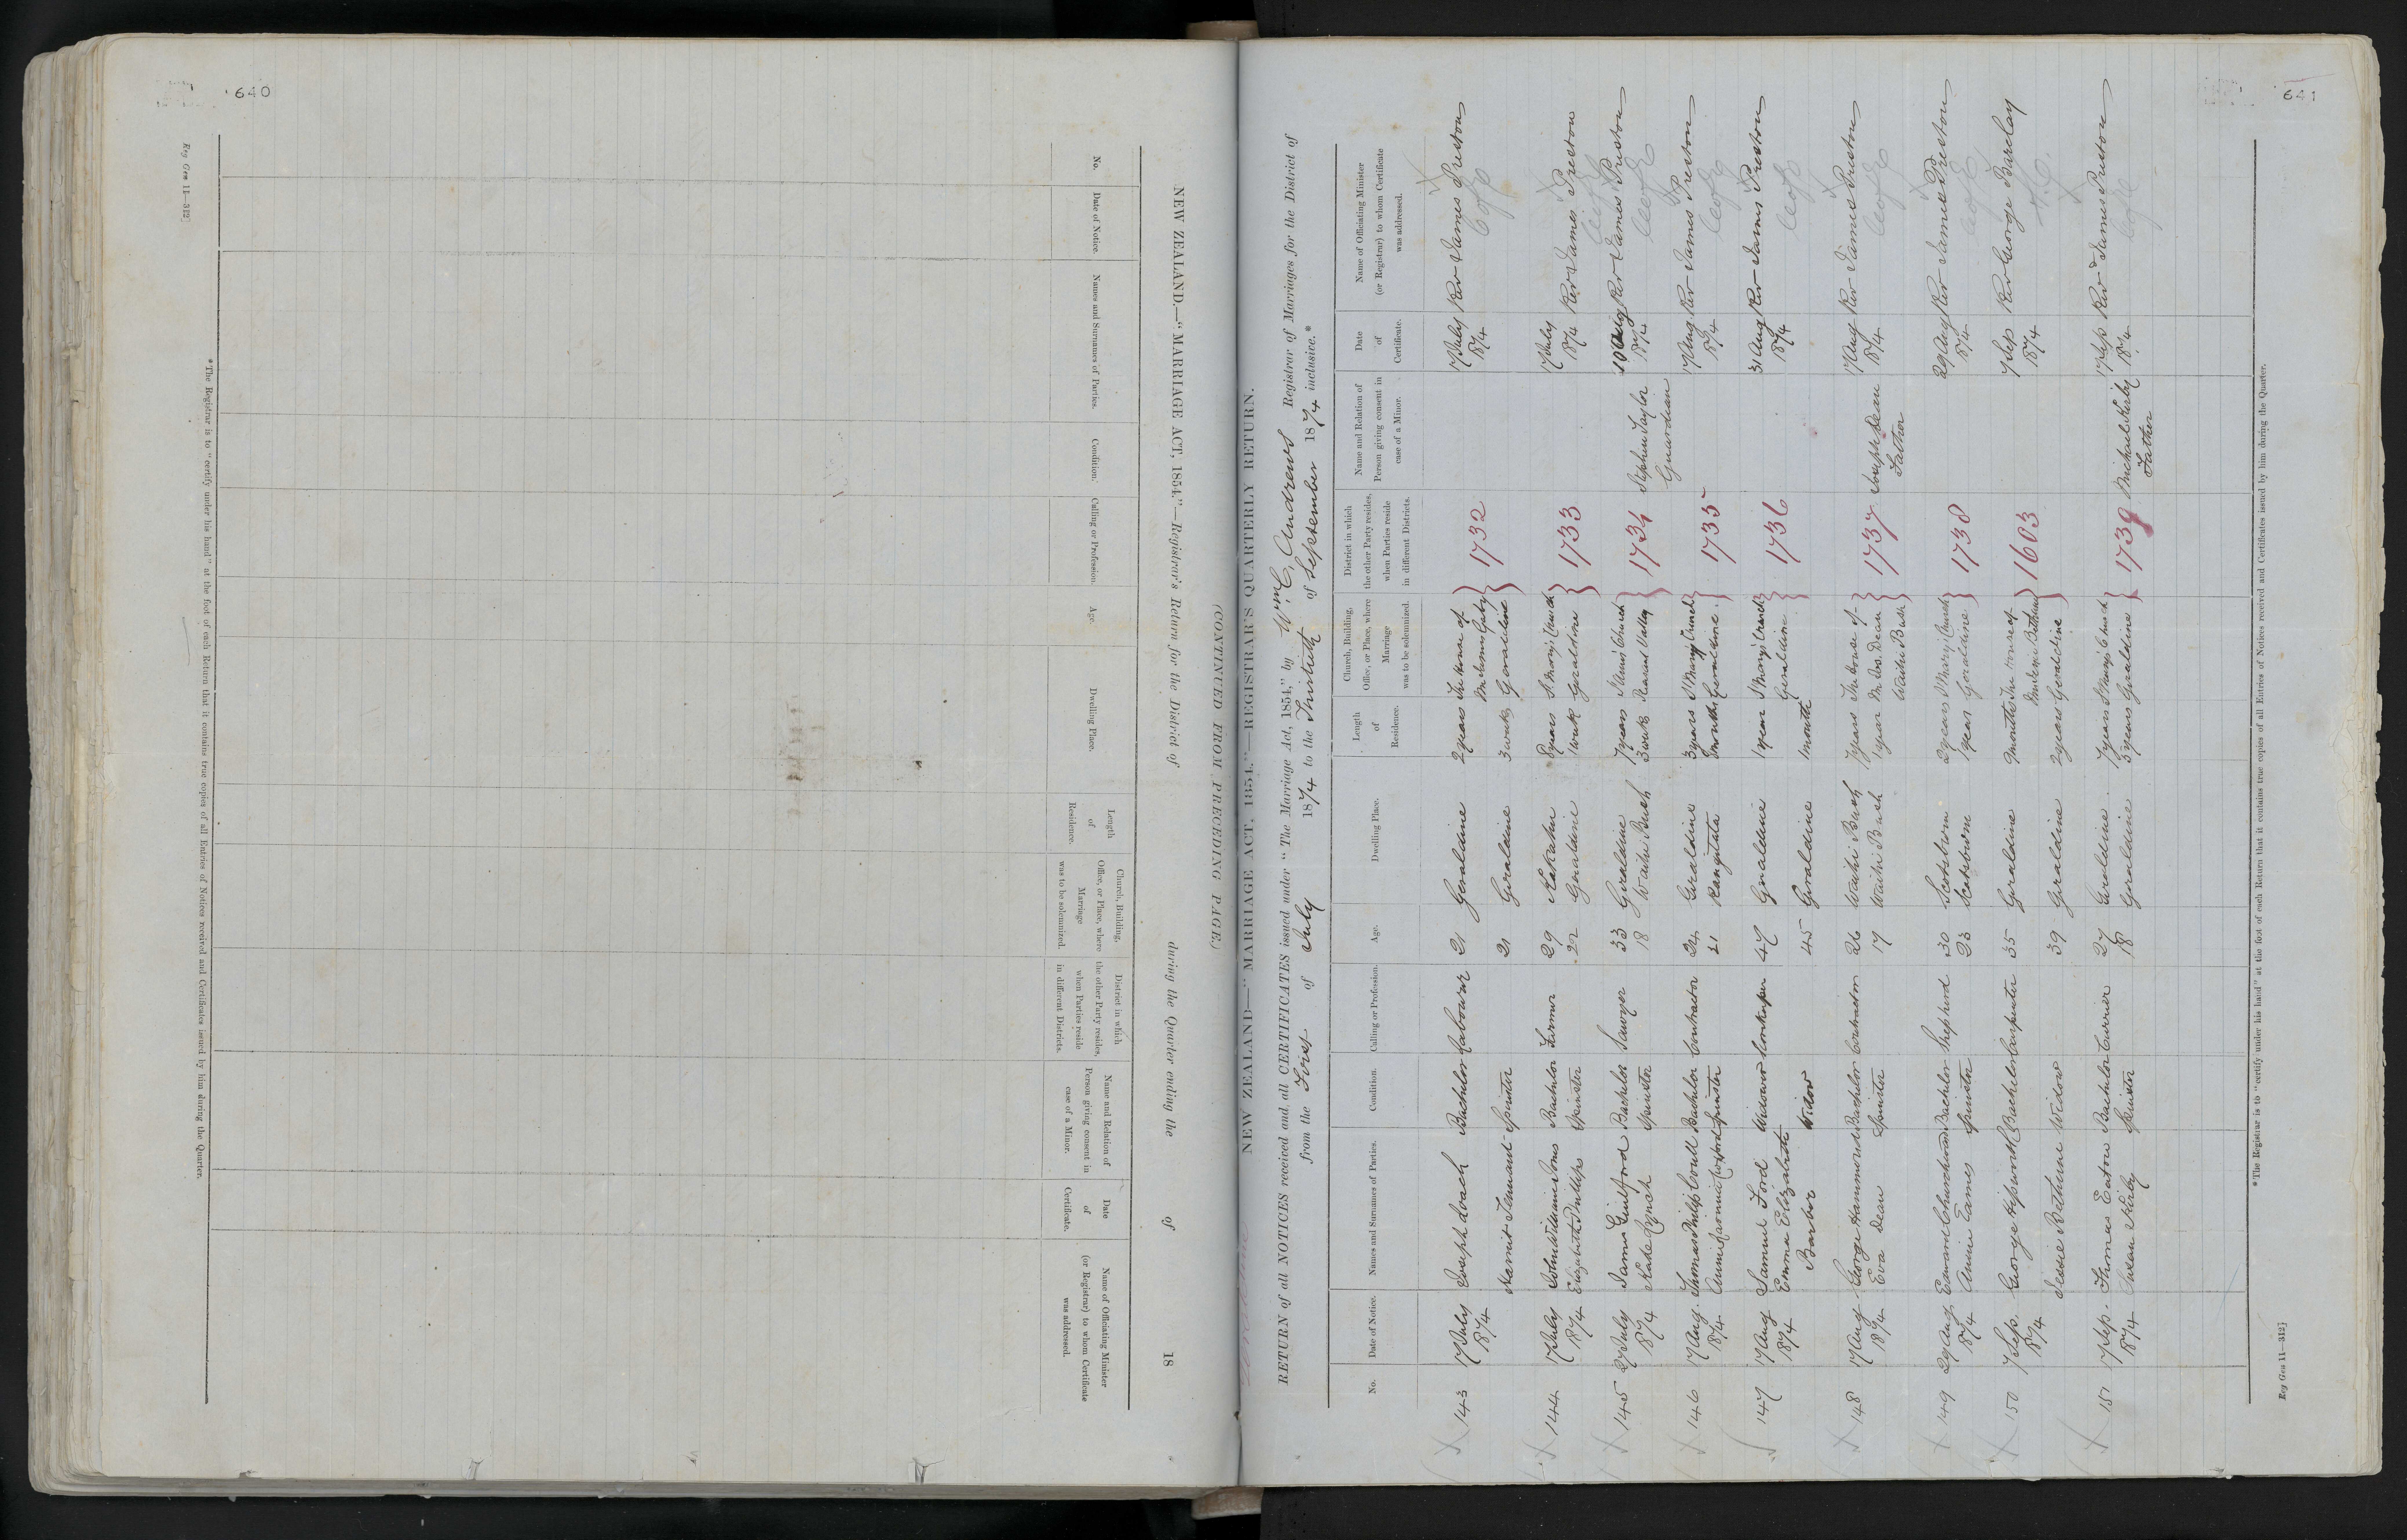 640
Reg Gen 11—312]
NEW ZEALAND.—"MARRIAGE ACT, 1854."—Registrar's Return for the District of during the Quarter ending the of 18
(CONTINUED FROM PRECEDING PAGE.)
No.
Date of Notice.
Names and Surnames of Parties.
Condition.
Calling or Profession.
Age.
Dwelling Place.
Length
of
Residence.
Church, Building,
Office, or Place, where
Marriage
was to be solemnized.
District in which
the other Party resides,
when Parties reside
in different Districts.
Name and Relation of
Person giving consent in
case of a Minor.
Date
of
Certificate.
Name of Officiating Minister
(or Registrar) to whom Certificate
was addressed.
* The Registrar is to "certify under his hand" at the foot of each Return that it contains true copies of all Entries of Notices received and Certificates issued by him during the Quarter.
641
NEW ZEALAND—"MARRIAGE ACT, 1854."—REGISTRAR'S QUARTERLY RETURN.
RETURN of all NOTICES received and all CERTIFICATES issued under "The Marriage Act, 1854," by Wm. C. Andrews Registrar of Marriages for the District of
Geraldine from the First of July 1874 to the Thirtieth of September 1874 inclusive.*
No.
Date of Notice.
Names and Surnames of Parties.
Condition.
Calling or Profession.
Age.
Dwelling Place.
Length
of
Residence.
Church, Building,
Office, or Place, where
Marriage
was to be solemnized.
District in which
the other Party resides,
when Parties reside
in different Districts.
Name and Relation of
Person giving consent in
case of a Minor.
Date
of
Certificate.
Name of Officiating Minister
(or Registrar) to whom Certificate
was addressed.
143 17 July Joseph Loach Bachelor Labourer 21 Geraldine 2 years The House of 1732 17 July Rev James Preston
1874 Harriet Tennant Spinster 21 Geraldine 3 weeks Geraldine 1874
144 17 July John William Jones Bachelor Farmer 29 Kakahu 8 years St Mary's Church 1733 17 July Rev James Preston
1874 Elizabeth Phillips Spinster 22 Geraldine 1 week Geraldine 1874
145 27 July James Guilford Bachelor Sawyer 33 Geraldine 7 years Church 1734 Stephen Taylor 10 Aug Rev James Preston
1874 Kate Lynch Spinster 18 Waihi Bush 3 weeks Pleasant Valley Guardian 1874
146 17 Aug. Thomas Philip Coull Bachelor Contractor 24 Geraldine 3 years St Mary's Church 1735 17 Aug Rev James Preston
1874 Annie Spinster 21 Rangitata months Geraldine 1874
147 17 Aug Samuel Ford Widower Storekeeper 47 Geraldine 1 year St Mary's Church 1736 31 Aug Rev James Preston
1874 Emma Elizabeth Geraldine 1874
Barber Widow 45 Geraldine 1 month
148 17 Aug George Hammond Bachelor Contractor 26 Waihi Bush 7 years The house of 1737 Joseph Dean 17 Aug Rev James Preston
1874 Eva Dean Spinster 17 Waihi Bush 1 year Mr Jos. Dean Father 1874
Waihi Bush
149 29 Aug Edward Churchward Bachelor Shepherd 30 Scotsburn 2 years St Mary's Church 1738 29 Aug Rev James Preston
1874 Annie Eames Spinster 23 Scotsburn 1 year Geraldine 1874
150 7 Sep. George Hepworth Bachelor Carpenter 35 Geraldine 9 months The house of 1603 7 Sep Rev George Barclay
1874 Mrs Bethune 1874
Jessie Bethune Widow 39 Geraldine 2 years Geraldine
151 17 Sep. Thomas Eaton Bachelor Currier 27 Geraldine 7 years St Mary's Church 1739 Michael Kirby 17 Sep Rev James Preston
1874 Susan Kirby Spinster 18 Geraldine 3 years Geraldine Father 1874
* The Registrar is to "certify under his hand" at the foot of each Return that it contains true copies of all Entries of Notices received and Certificates issued by him during the Quarter.
Reg Gen 11—312]